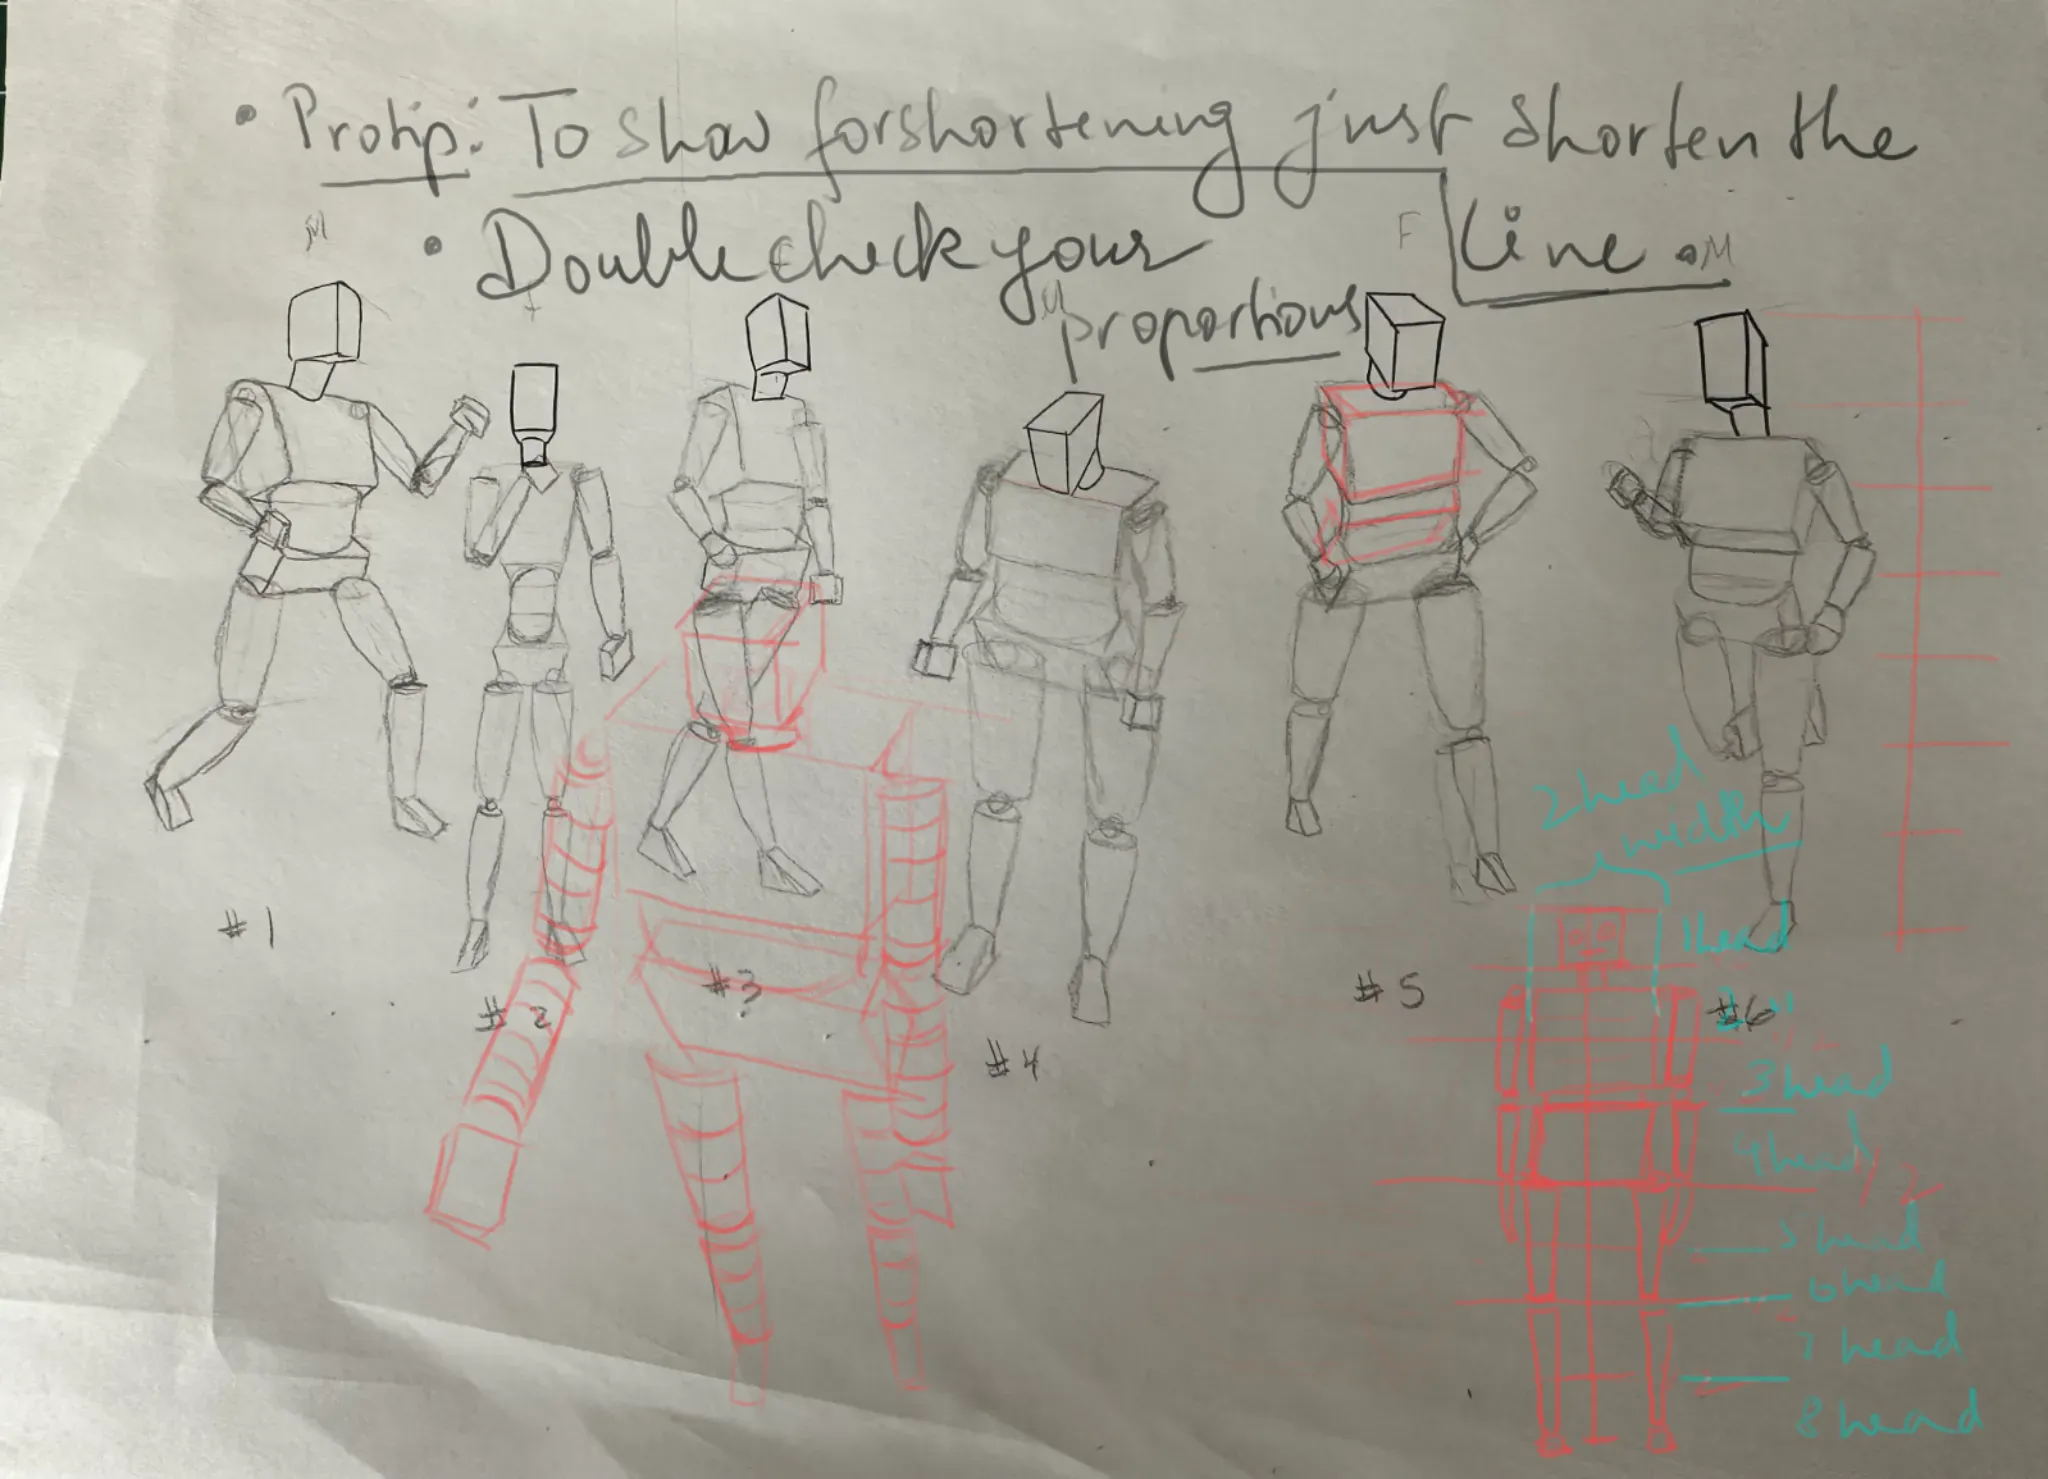 • Protip: To show forshortening just shorten the
line.
• Double check your
proportions
M
F
M
M
2 head
width
1 head
2 "
3 head
4 head
1/2
5 head
6 head
7 head
8 head
#1
#2
#3
#4
#5
#6